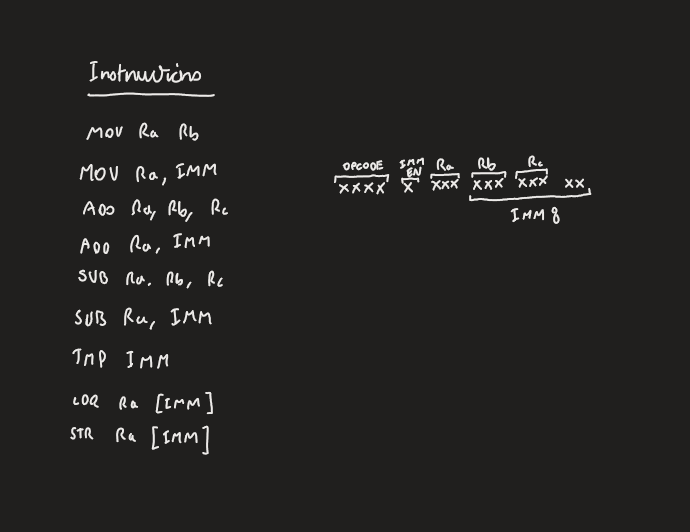 Instructions
MOV Ra Rb
MOV Ra, IMM
ADD Ra, Rb, Rc
ADD Ra, IMM
SUB Ra. Rb, Rc
SUB Ra, IMM
JMP IMM
LDR Ra [IMM]
STR Ra [IMM]
OPCODE IMM EN Ra Rb Rc
XXXX X XXX XXX XXX XX
IMM 8